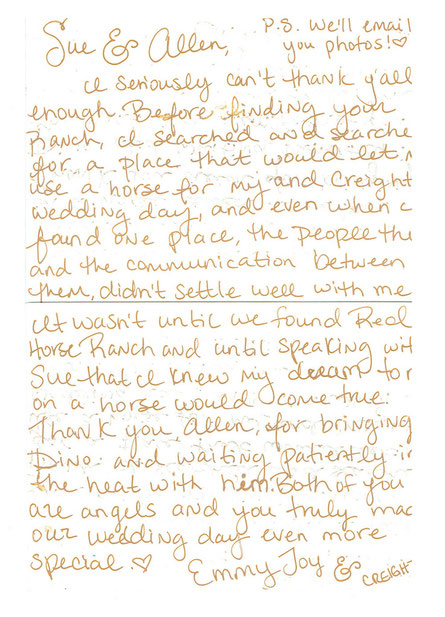 Sue & Allen,
P.S. We'll email
you photos! ♡
I seriously can't thank y'all
enough. Before finding your
Ranch, I searched and searche
for a place that would let
use a horse for my and Creight
wedding day, and even when
found one place, the people the
and the communication between
them, didn't settle well with me
It wasn't until we found Real
Horse Ranch and until speaking wit
Sue that I knew my dream to
on a horse would come true.
Thank you, Allen, for bringing
Dino and waiting patiently in
the heat with him. Both of you
are angels and you truly mad
our wedding day even more
special ♡
Emmy Joy &
CREIGH